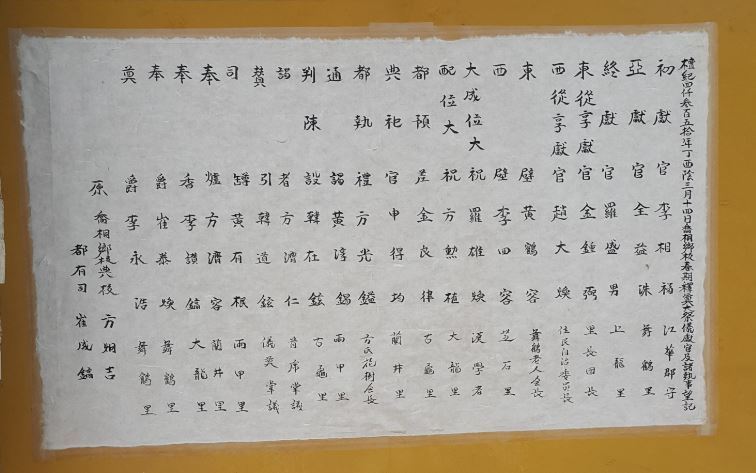 檀紀四仟參百五拾年丁酉陰三月十四日喬桐鄕校春期釋奠大祭儀獻官及諸執事望記
初獻官 李相福 江華郡守
亞獻官 全益洙 舞鶴里
終獻官 羅盛男 上龍里
東從享獻官 金鍾 里長団長
西從享獻官 趙大煥 住民自治委員長
東壁 黃鶴容 舞鶴老人会長
西壁 李四容 芝石里
大成位大祝 羅雄煥 漢學者
配位大祝 方勲植 大龍里
都預差 金良律 古龜里
典祀官 申得均 蘭井里
都執禮 方光鎰 方氏花樹会長
通謁 黃淳錫 兩甲里
判陳設 韓在鉉 古龜里
謁者 方濟仁 首席掌議
贊引 韓道鉉 儀典掌議
司罇 黃有根 兩甲里
奉爐 方濟容 蘭井里
奉香 李讃鎬 大龍里
奉爵 崔泰煥 舞鶴里
奠爵 李永浩 舞鶴里
原
喬桐鄕校典校 方 吉
都有司 崔成鎬